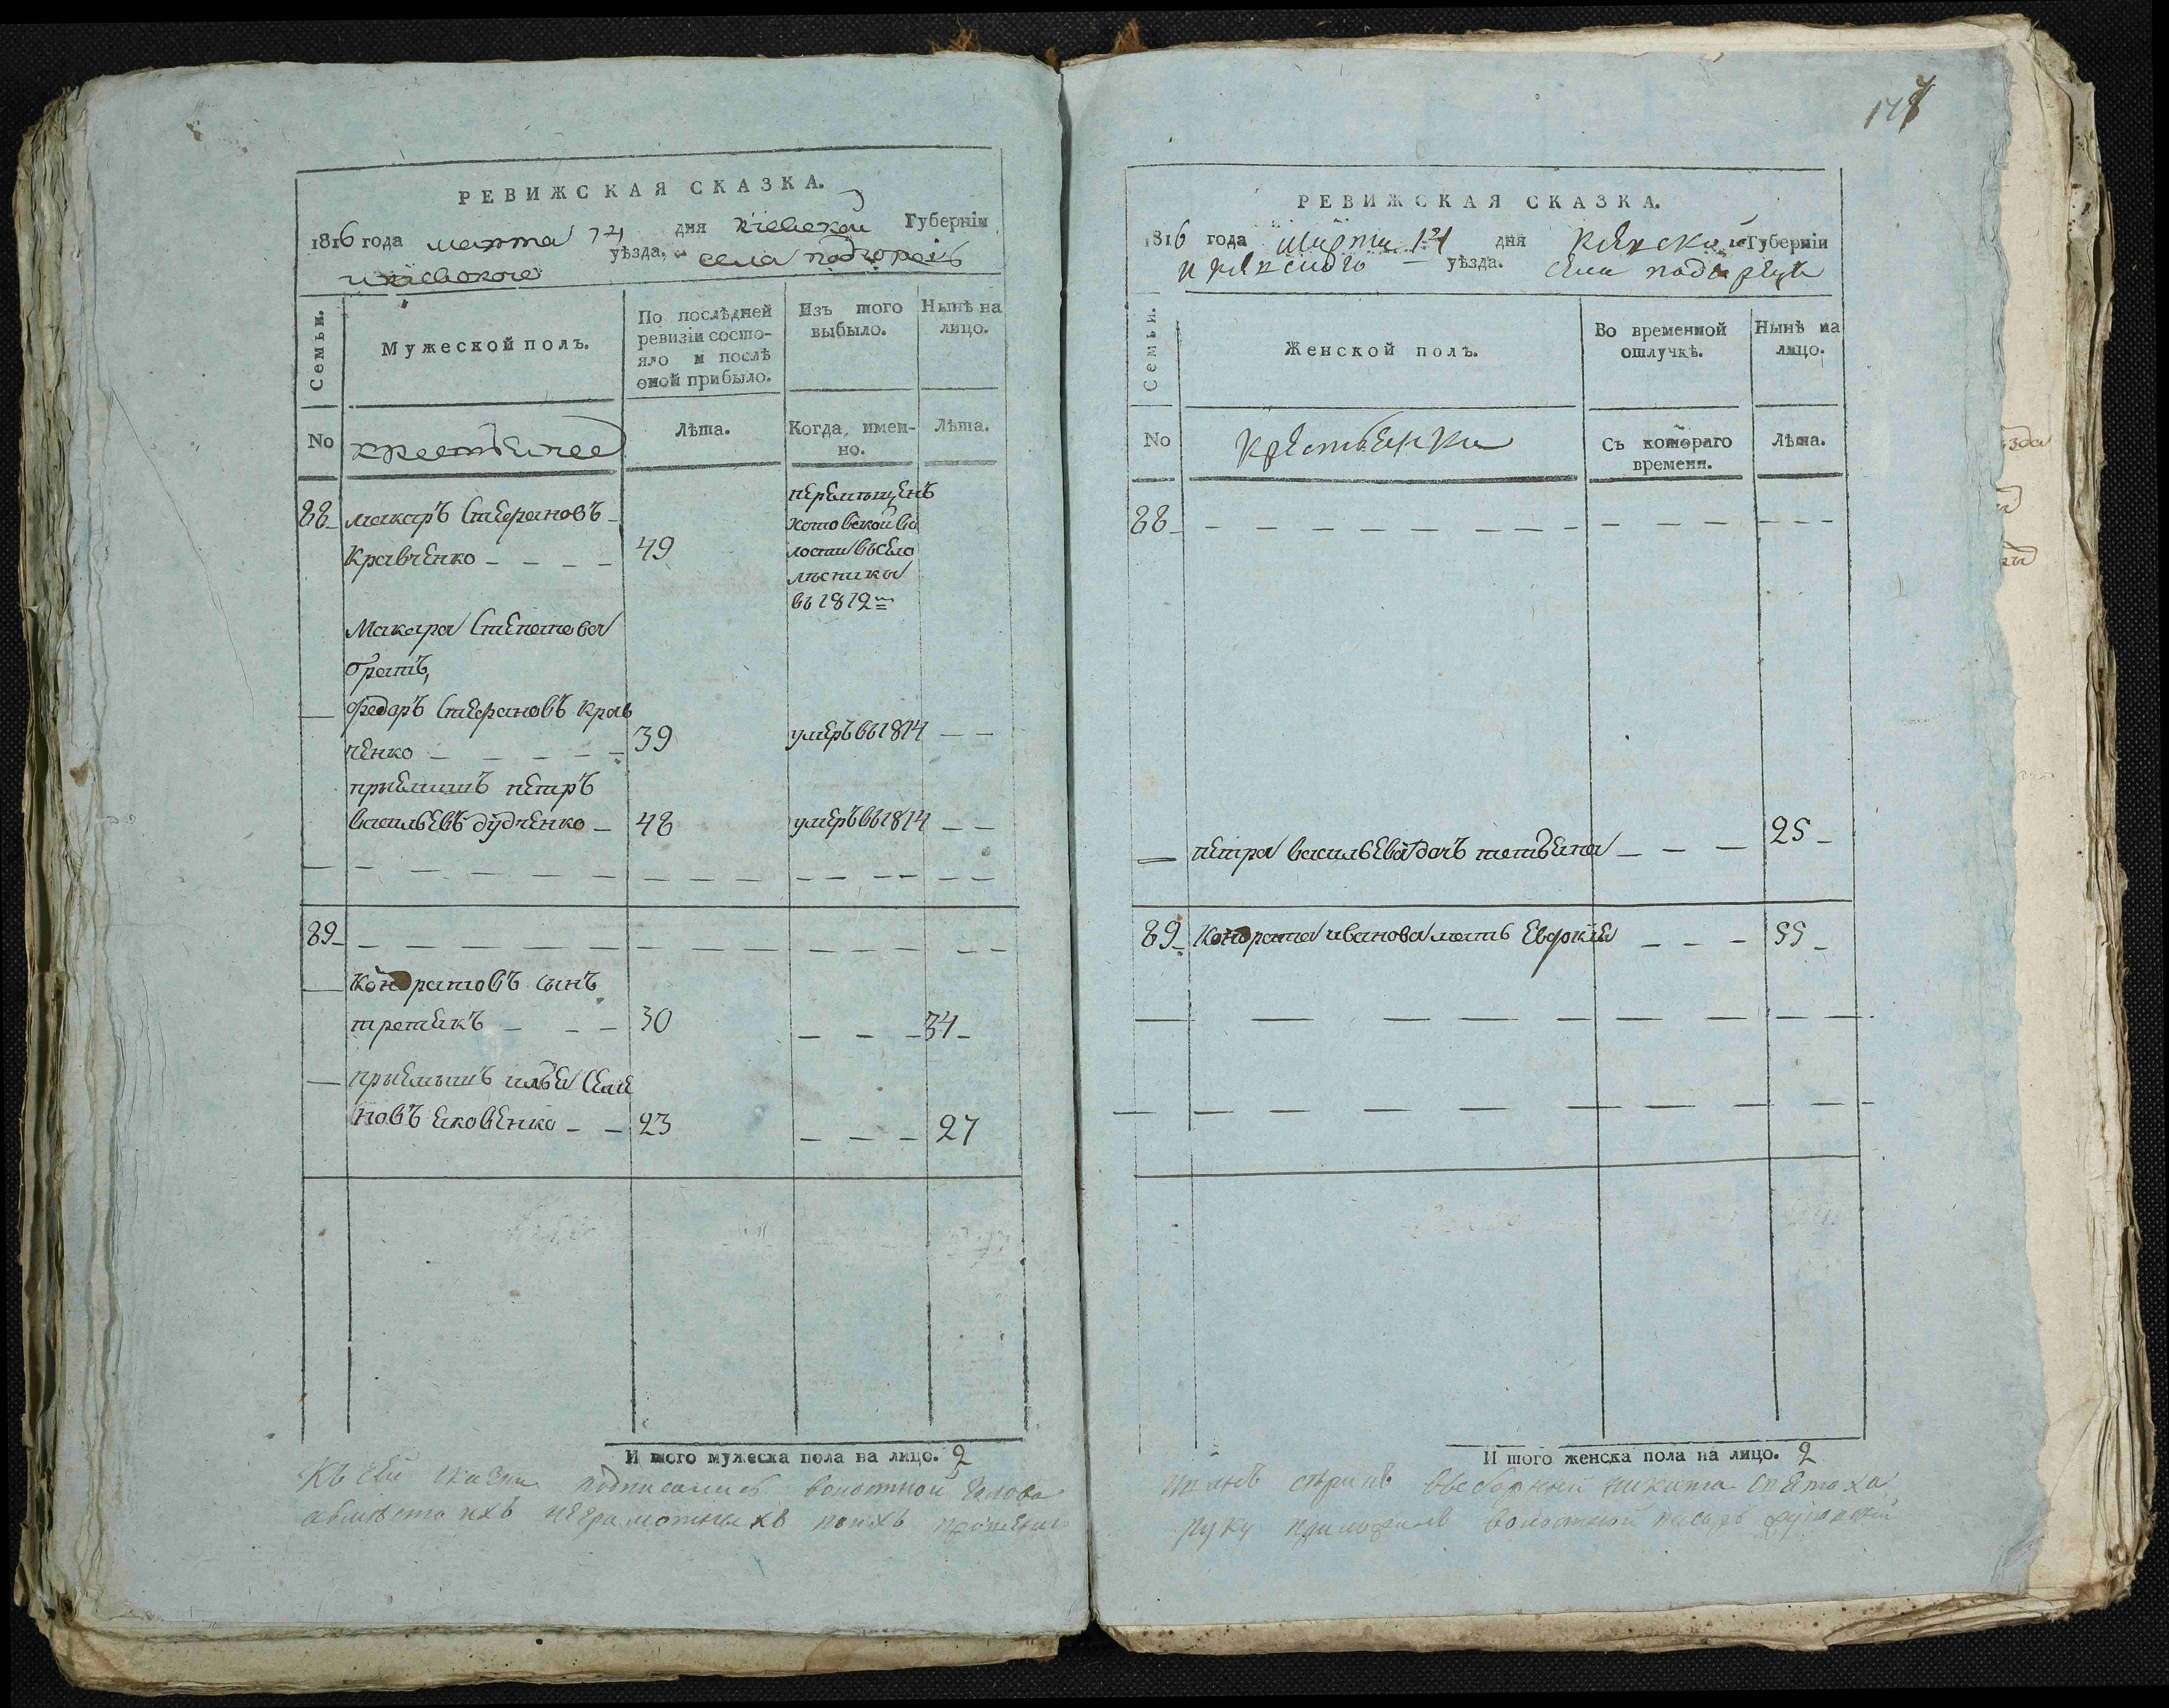 РЕВИЖСКАЯ СКАЗКА.
1816 года марта 14 дня Кіевской Губерніи
и кіевского уѣзда, села подгорецъ
Семьи. Мужеской полъ. По послѣдней ревизіи состояло и послѣ оной прибыло. Изъ того выбыло. Нынѣ на лицо.
No Лѣта. Когда, именно. Лѣта.
88 макаръ Степановъ
кравченко 49
перемѣщенъ
хотовской во
лости въ село
лѣсники
въ 1812
Макара Степанова
братъ,
федоръ Степановъ крав
ченко 39 умеръ въ 1814
прыемышъ петръ
васильевъ дудченко 48 умеръ въ 1814
89
кондратовъ сынъ
30 34
прыемышъ илья Семе
новъ яковенко 23 27
И того мужеска пола на лицо. 2
Къ сей сказки волостной голова
неграмотныхъ
178
РЕВИЖСКАЯ СКАЗКА.
1816 года марта 14 дня Кіевской Губерніи
и кіевского уѣзда. села подгорецъ
Семьи. Женской полъ. Во временной отлучкѣ. Нынѣ на лицо.
No крестьянки Съ котораго времени. Лѣта.
88
петра васильева дочь татьяна 25
89 кондрата иванова мать Евфкія 55
И того женска пола на лицо. 2
выборный никита
руку приложилъ волостной писарь